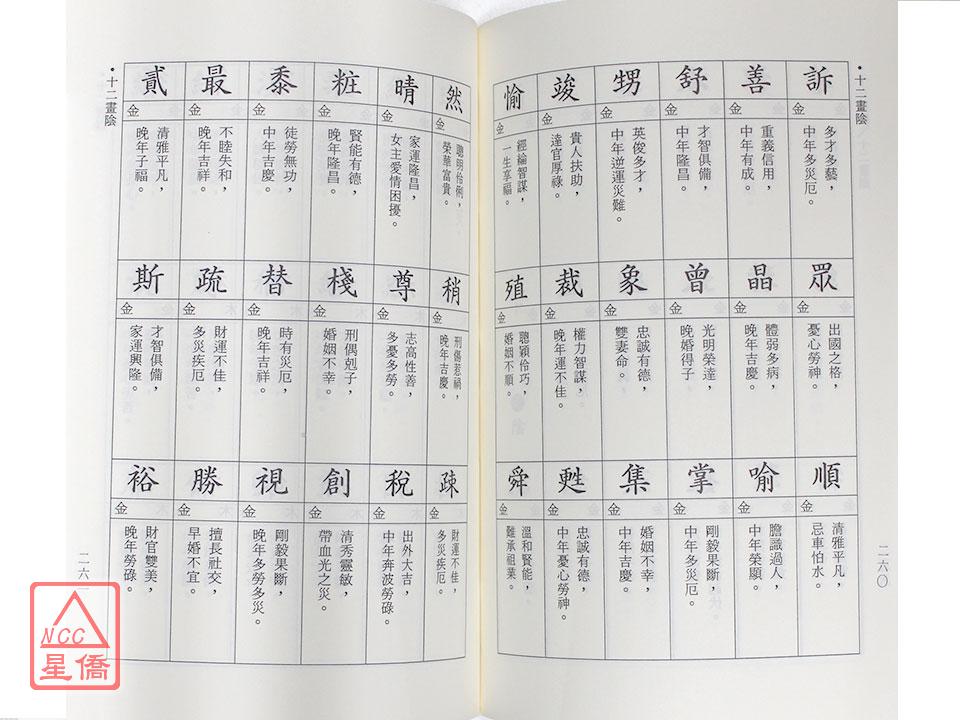 •十二畫陰
訴
金
多才多藝，
中年多災厄。
善
金
重義信用，
中年有成。
舒
金
才智俱備，
中年隆昌。
甥
金
英俊多才，
中年逆運災難。
竣
金
貴人扶助，
達官厚祿。
愉
金
經綸智謀，
一生享福。
眾
金
出國之格，
憂心勞神。
晶
金
體弱多病，
晚年吉慶。
曾
金
光明榮達，
晚婚得子
象
金
忠誠有德，
雙妻命。
裁
金
權力智謀，
晚年運不佳。
殖
金
聰穎伶巧，
婚姻不順。
順
金
清雅平凡，
忌車怕水。
喻
金
膽識過人，
中年榮顯。
掌
金
剛毅果斷，
中年多災厄。
集
金
婚姻不幸，
中年吉慶。
甦
金
忠誠有德，
中年憂心勞神。
舜
金
溫和賢能，
難承祖業。
二六〇
然
金
聰明伶俐，
榮華富貴。
晴
金
家運隆昌，
女主愛情困擾。
粧
金
賢能有德，
晚年隆昌。
黍
金
徒勞無功，
中年吉慶。
最
金
不睦失和，
晚年吉祥。
貳
金
清雅平凡，
晚年子福。
稍
金
刑傷惹禍，
晚年吉慶。
尊
金
志高性善，
多憂多勞。
棧
金
刑偶剋子，
婚姻不幸。
替
金
時有災厄，
晚年吉祥。
疏
金
財運不佳，
多災疾厄。
斯
金
才智俱備，
家運興隆。
疎
金
財運不佳，
多災疾厄。
稅
金
出外大吉，
中年奔波勞碌。
創
金
清秀靈敏，
帶血光之災。
視
金
剛毅果斷，
晚年多勞多災。
勝
金
擅長社交，
早婚不宜。
裕
金
財官雙美，
晚年勞碌。
•十二畫陰
二六
NCC
星僑